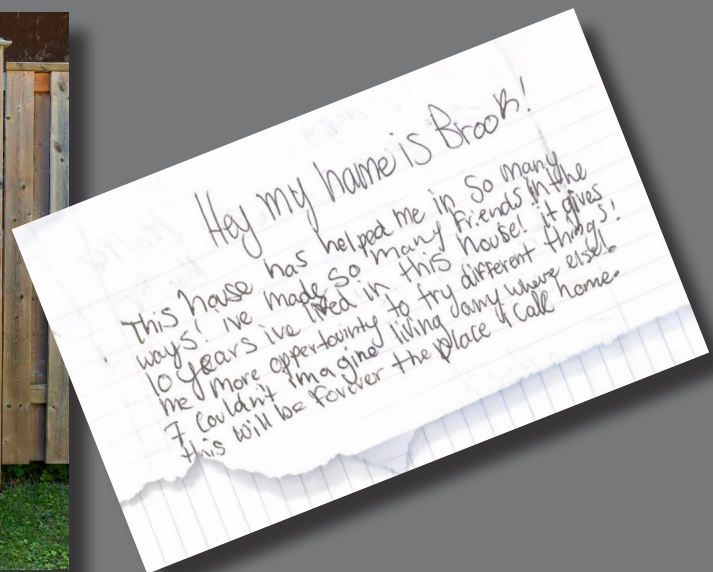 Hey my name is Brook!
This house has helped me in so many
ways! ive made so many friends in the
10 years ive lived in this house! it gives
me more oppertouinty to try different things!
I couldn't imagine living any where else!
this will be forever the place i call home.